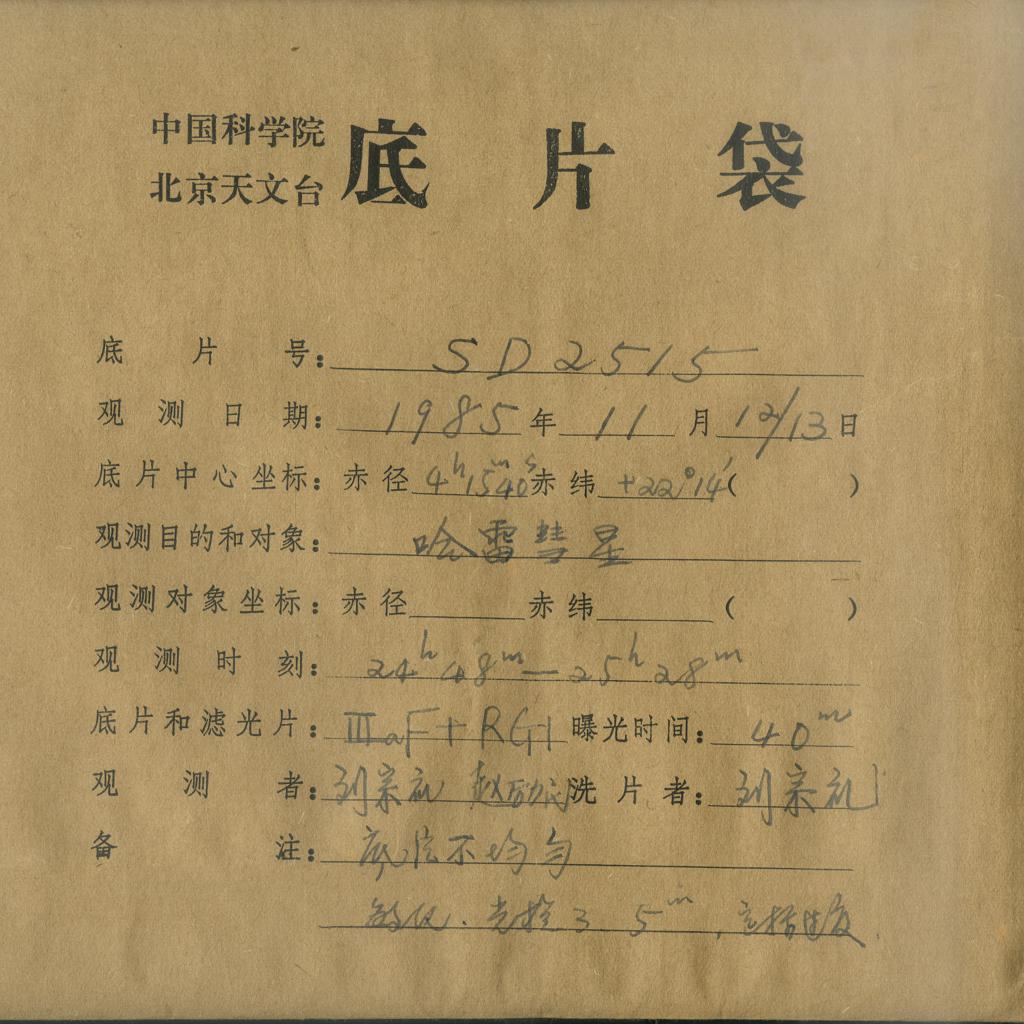 中国科学院
北京天文台
底片袋
底片号：SD2515
观测日期：1985年11月12/13日
底片中心坐标：赤径4ʰ15ᵐ40ˢ赤纬+22°14′( )
观测目的和对象：哈雷彗星
观测对象坐标：赤径 赤纬 ( )
观测时刻：24ʰ48ᵐ—25ʰ28ᵐ
底片和滤光片：ⅢaF+RG1曝光时间：40ᵐ
观测者：刘宗礼 赵 洗片者：刘宗礼
备注：底 不均匀
5ᵐ，